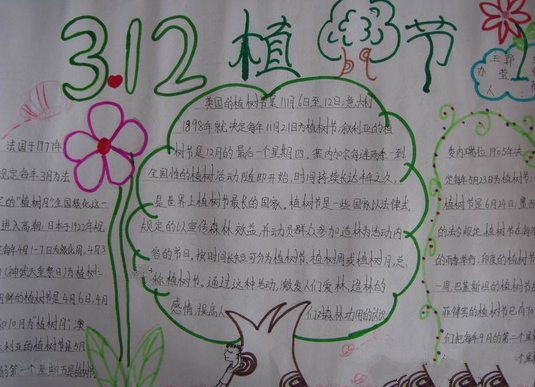 3.12 植树节
办
人：
英国的植树节是11月6日至12日；意大利
1898年就决定每年11月21日为植树节；叙利亚的植
树节是12月的最后一个星期四。塞内加尔每逢雨季一到
全国性的植树活动随即开始，时间持续长达半年之久，
是世界上植树节最长的国家。植树节是一些国家以法律式
规定的以宣传森林效益，并动员群众参加造林为活动内
容的节日。按时间长短可分为植树节、植树周或植树月，总
称植树节。通过这种活动，激发人们爱林、造林的
感情，提高人们对森林功用的认识
法国于1977年
规定每年3月为法
定的“植树月”全国绿化这一
进入高潮；日本于1922年规
定每年4月1-7日为绿化周，4月3
日（神武天皇祭日）为植树
朝鲜的植树节是4月6日，4月
10月为“植树月”；澳
利亚的植树节是5月
的第一个星期五是植树
委内瑞拉1905年决
定每年5月23日为植树节
植树节是6月24日；墨西
的法令规定植树节在每年
的雨季举行；印度的植树节
一周，巴基斯坦的植树节
菲律宾的植树节已有70
们把每年9月的第一个星期